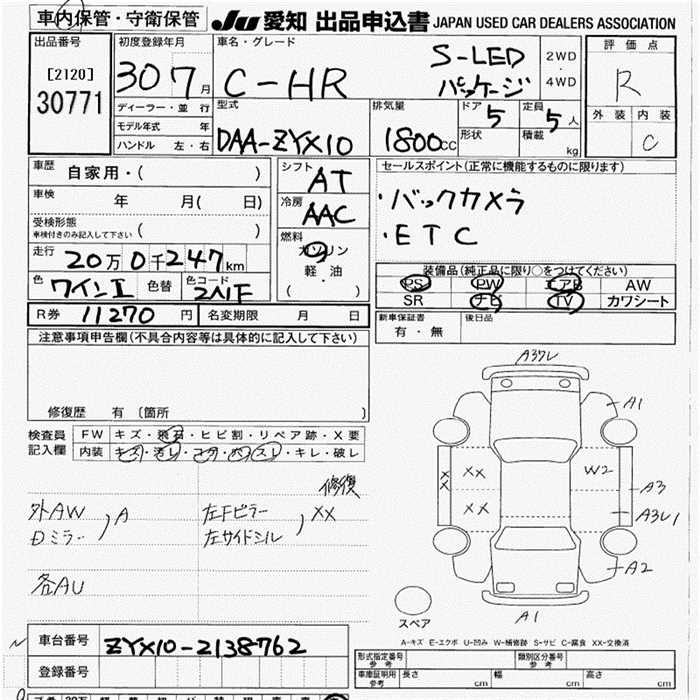 車内保管・守衛保管
JU 愛知 出品申込書 JAPAN USED CAR DEALERS ASSOCIATION
出品番号
[2120]
30771
初度登録年月
30 7月
ディーラー・並行
モデル年式 年
ハンドル 左・右
車名・グレード
C-HR
S-LED
パッケージ
2WD
・
4WD
型式
DAA-ZYX10
排気量
1800cc
ドア
5
形状
定員
5人
積載
kg
評価点
R
外装 内装
C
車歴
自家用・( )
車検
年 月( 日)
受検形態
車検付きのみ記入して下さい ( )
走行
20万0千247km
色
ワインI
色替
色コード
2NF
R券 11270円
名変期限 月 日
シフト
AT
冷房
AAC
燃料
ガソリン
軽・油
( ・ )
セールスポイント(正常に機能するものに限ります)
・バックカメラ
・ETC
装備品(純正品に限り○をつけてください)
PS PW エアB AW
SR ナビ TV カワシート
新車保証書
有・無
後日品
注意事項申告欄(不具合内容等は具体的に記入して下さい)
修復歴 有 〔箇所 〕
検査員
記入欄
FW キズ・飛石・ヒビ割・リペア跡・X要
内装 キズ・汚レ・コゲ・穴・スレ・キレ・破レ
修復
外AW
Dミラー
, A
左Fピラー
左サイドシル
, XX
各AU
A3ワレ
A1
XX
XX
XX
W2
A3
A3ワ1
A2
A1
スペア
A-キズ E-エクボ U-凹ミ W-補修跡 S-サビ C-腐食 XX-交換済
車台番号
ZYX10-2138762
登録番号
形式指定番号
参考
類別区分番号
参考
車庫証明用
参考
長さ cm
幅 cm
高さ cm